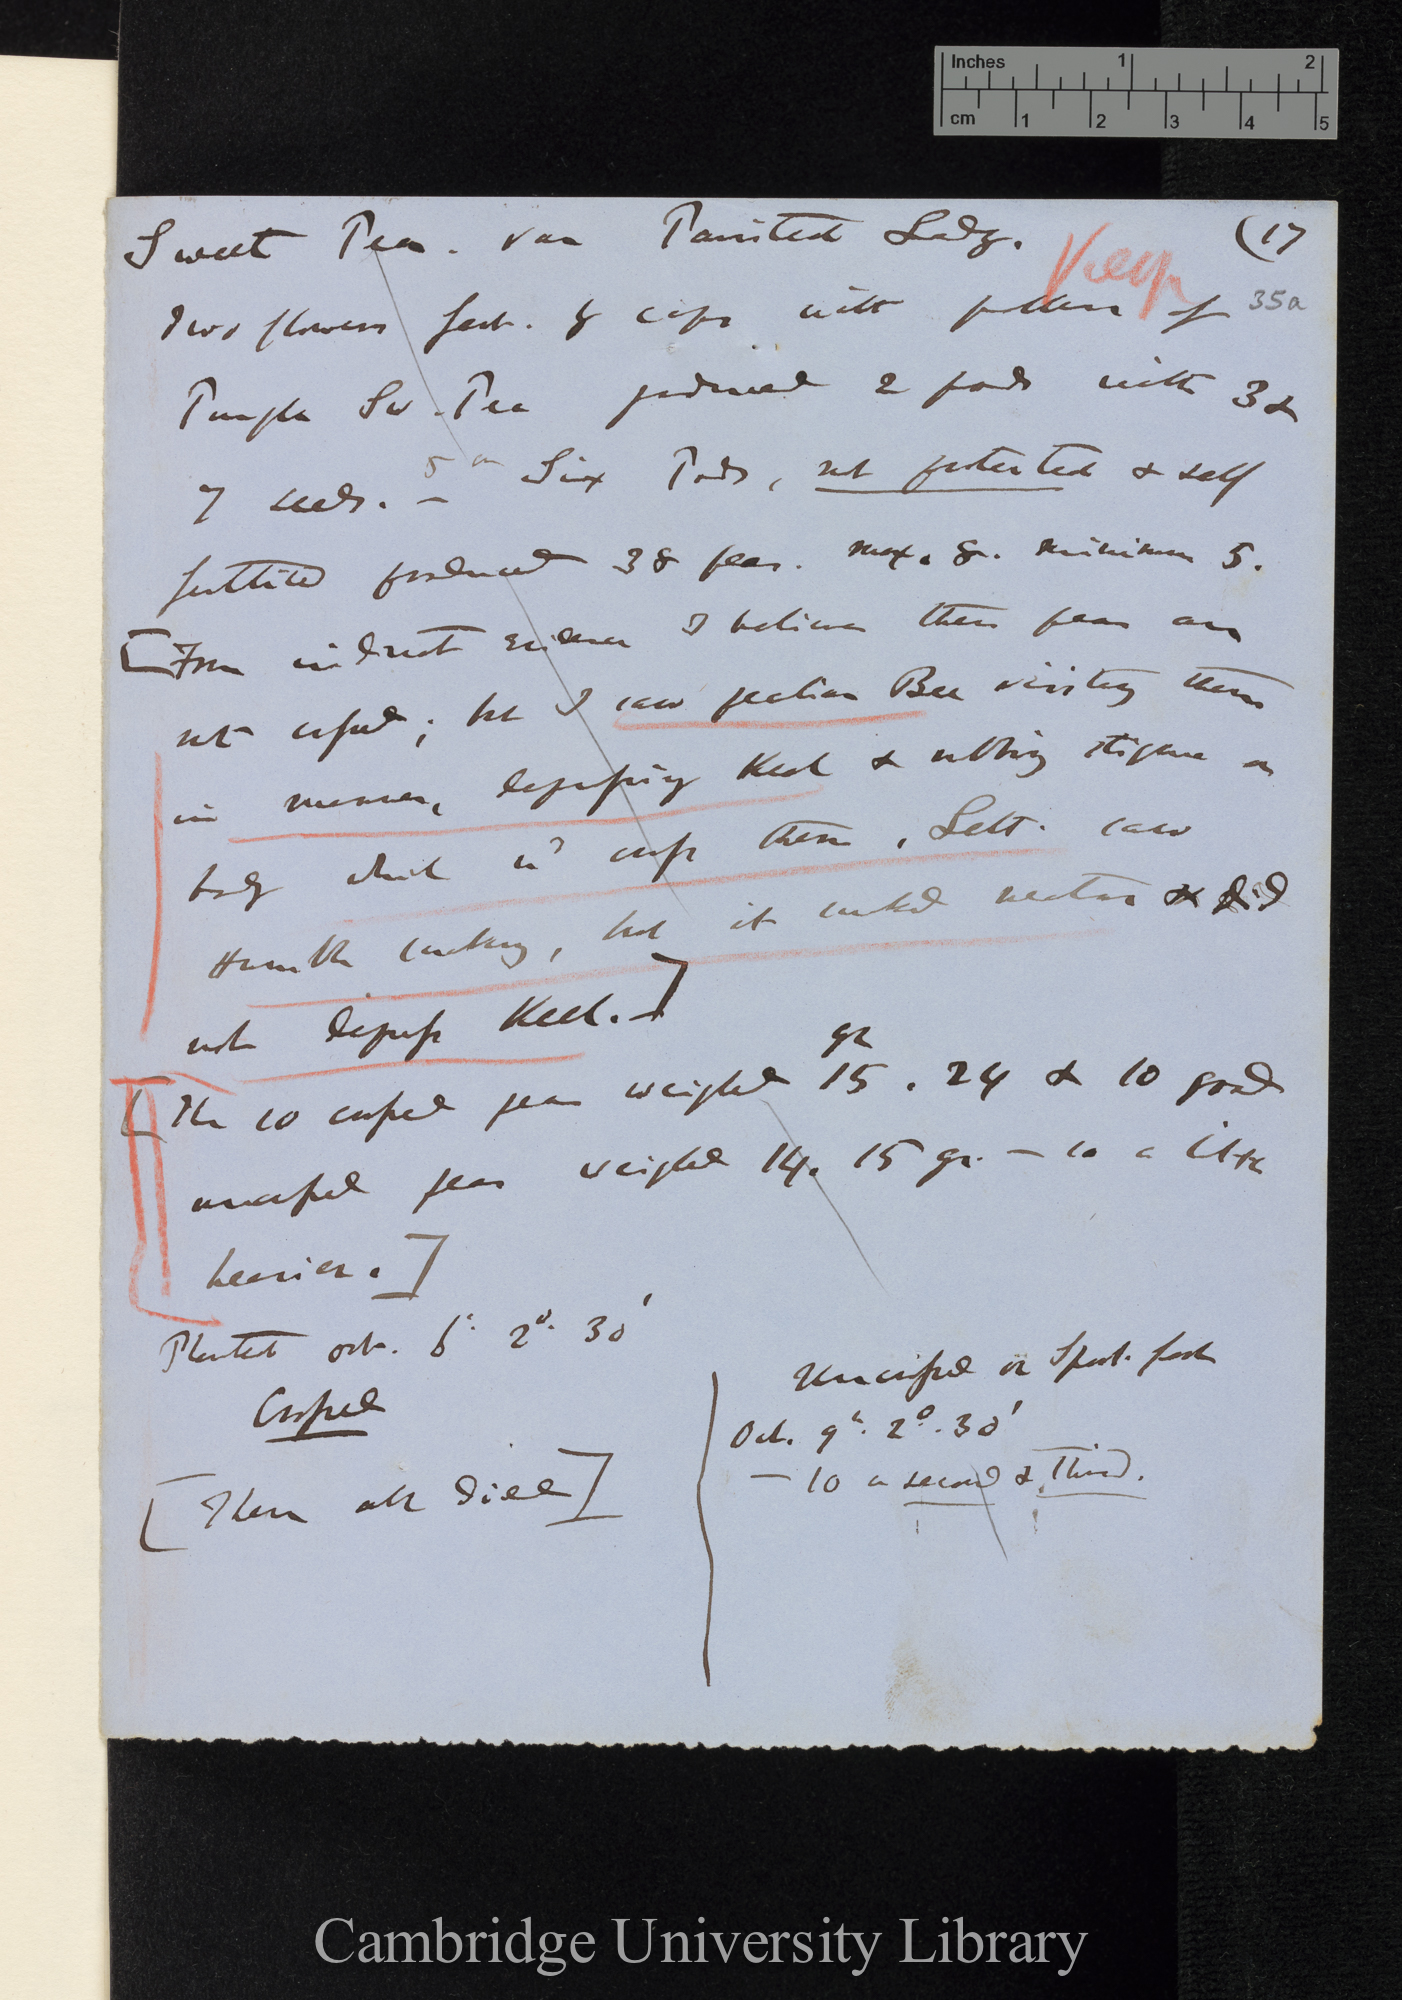 Inches 1 2
cm 1 2 3 4 5
Sweet Pea. var Painted Lady. (17
Keep
35a
Two flowers fert. & with pollen of
Purple Sw. Pea produced 2 pods with 3 &
7 seeds. — Six Pods, not protected & self
fertilised produced 38 peas. max. 8. minimum 5.
[From indirect evidence I believe these peas are
not crossed; but I saw Bee visiting them
in manner, depressing Keel & rubbing stigma on
body which wd cross them, Sept. saw
Humble sucking, but it sucked nectar & did
not depress Keel.—]
gr
[The 10 crossed peas weighed 15. 24 & 10 good
uncrossed peas weighed 14. 15 gr. — so a little
heavier.]
Planted Oct. 6. 2°. 30'
Crossed
[These all died]
Uncrossed or Spont. fert
Oct. 9. 2°. 30'
— 10 a second & third.
Cambridge University Library